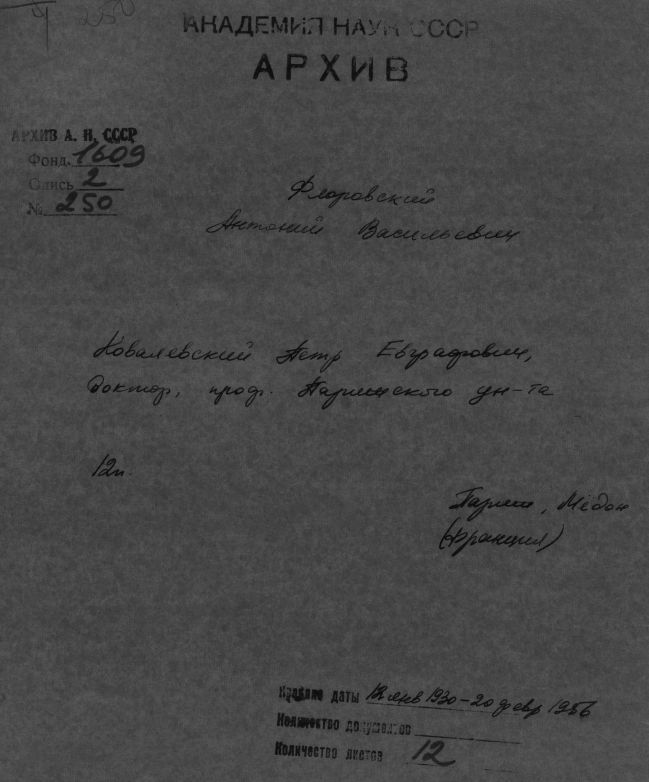 4 250
АКАДЕМИЯ НАУК СССР
АРХИВ
АРХИВ А. Н. СССР
Фонд. 1609
Опись 2
№ 250
Флоровский
Антоний Васильевич
Ковалевский Петр Евграфович,
Доктор, проф. Парижского ун-та
12п.
Париж, Мёдон
(Франция)
Крайние даты янв 1930 - 20 февр 1956
Количество документов
Количество листов 12